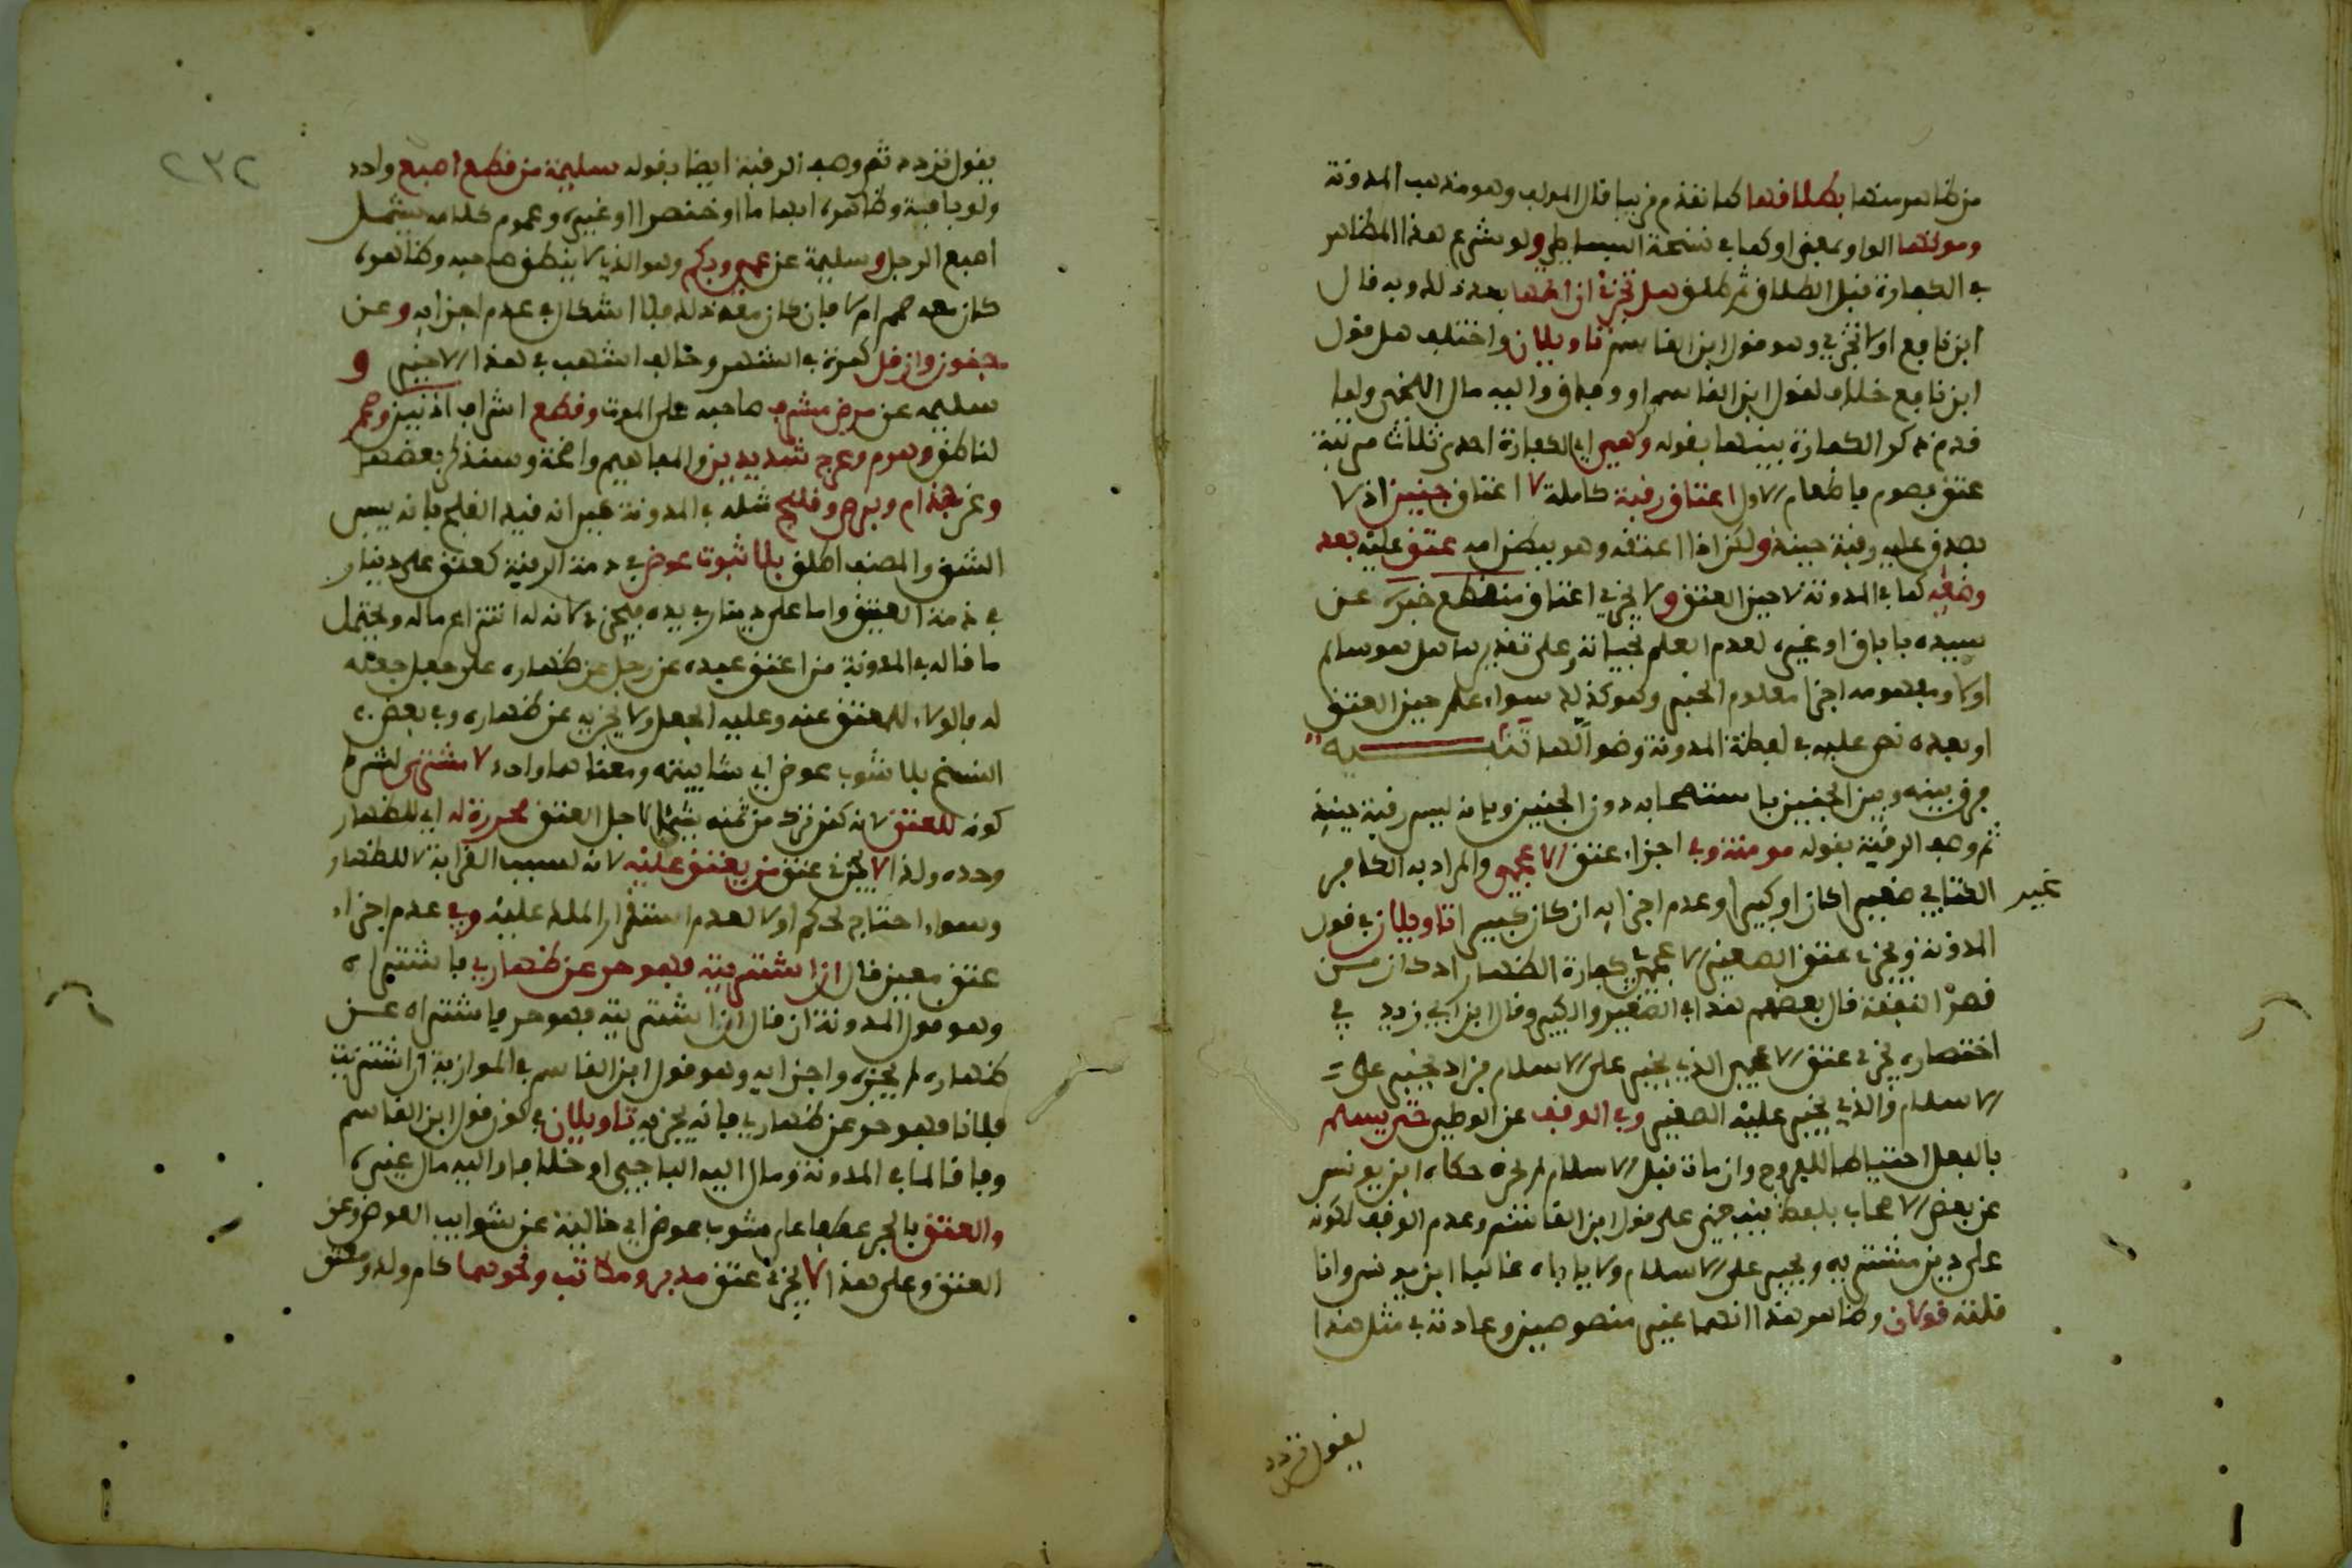 من ظاهر منها بطلاقها كما تقدم قريبا قال المولف وهو مذهب المدونة
وموتها الواو بمعنى او كما في نسخة البساطي ولو شرع هذا المظاهر
في الكفارة قبل الطلاق ثم طلق هل تجزئ ان اتمها بعد ذلك وبه قال
ابن نافع اولا تجزئ وهو قول ابن القاسم تاويلان واختلف هل قول
ابن نافع خلاف لقول ابن القاسم او وفاق واليه مال اللخمي ولما
قدم ذكر الكفارة بينها بقوله وهي اي الكفارة احدى ثلاث مرتبة
عتق فصوم فاطعام الاول اعتاق رقبة كاملة لا اعتاق جنين اذ لا
يصدق عليه رقبة حينئذ ولكن اذا اعتقه وهو ببطن امه عتق عليه بعد
وضعه كما في المدونة لا حين العتق ولا يجزئ اعتاق منقطع خبره عن
سيده باباق او غيره لعدم العلم بحياته وعلى تقديرها هل هو سالم
اولا ومفهومه اجزا معلوم الخبر وهو كذلك سواء علم حين العتق
او بعده نص عليه في لفظة المدونة وضوالها تنبيه
فرق بينه وبين الجنين باستصحابه دون الجنين وبانه ليس رقبة حينئذ
ثم وصف الرقبة بقوله مومنة وفي اجزاء عتق الاعجمي والمراد به الكافر
غير الكتابي صغيرا كان او كبيرا وعدم اجزايه ان كان كبيرا تاويلان في قول
المدونة ويجزئ عتق الصغير الاعجمي في كفارة الظهار اذ كان من
قصر النفقة قال بعضهم هذا في الصغير والكبير وقال ابن ابي زيد في
اختصاره يجزئ عتق الاعجمي الذي يجبر على الاسلام فزاد يجبر على
الاسلام والذي يجبر عليه الصغير وفي الوقف عن الوطي حتى يسلم
بالفعل احتياطا للفروج وان مات قبل الاسلام لم يجزه حكاه ابن يونس
عن بعض الاصحاب بلفظ ينبغي على قول ابن القاسم وعدم الوقف لكونه
على دين مشتريه ويجبر على الاسلام ولا ياباه غالبا ابن يونس وانا
قلته قولان وظاهر هذا انهما غير منصوصين وعادته في مثل هذا
يقول تردد
٢٣٢
يقول تردد ثم وصف الرقبة ايضا بقوله سليمة من قطع اصبع واحد
ولو باقية وظاهره ابهاما او خنصرا او غيره وعموم كلامه يشمل
اصبع الرجل وسليمة عن عمى وبكم وهو الذي لا ينطق صاحبه وظاهره
كان معه صمم ام لا فان كان معه ذلك فلا اشكال في عدم اجزايه وعن
جنون وان قل كمرة في الشهر وخالف اشهب في هذا الاخير و
سليمه عن مرض مشرف صاحبه على الموت وقطع اشراف اذنين وصمم
لناطق وهرم وعرج شديدين والمفاهيم واضحة وسنذكر بعضها
وعن جذام وبرص وفلج مثله في المدونة غير انه قيد الفلج بانه يبس
الشق والمصنف اطلق بلا ثبوت عوض في ذمة الرقبة كعتق على دينار
في ذمة العتيق واما على دينار بيده فيجزئ لانه له انتزاع ماله ويحتمل
ما قاله في المدونة من اعتق عبده عن رجل عن ظهاره على جعل جعله
له فالولاء للمعتق عنه وعليه الجعل ولا يجزيه عن ظهاره وفي بعض
النسخ بلا شوب عوض اي شايبته ومعناهما واحد لا مشترى لشرط
كونه للعتق لانه كمن ترك من ثمنه شيئا لاجل العتق محررة له اي للظهار
وحده ولذا لا يجزئ عتق من يعتق عليه لانه لسبب القرابة لا للظهار
وسواء احتاج لحكم اولا لعدم استقرار الملك عليه وفي عدم اجزاء
عتق معين قال ان اشتريته فهو حر عن ظهاري فاشتراه
وهو قول المدونة ان قال ان اشتريته فهو حر فاشتراه عن
ظهاره لم يجزه واجزايه وهو قول ابن القاسم في الموازية ان اشتريت
فلانا فهو حر عن ظهاري فانه يجزيه تاويلان في كون قول ابن القاسم
وفاقا لما في المدونة ومال اليه الباجي او خلافا واليه مال غيره
والعتق بالجر عطفا على مشوب عوض اي خالية عن شوايب العوض وعن
العتق وعلى هذا لا يجزئ عتق مدبر ومكاتب ونحوهما كام ولد ومعتق